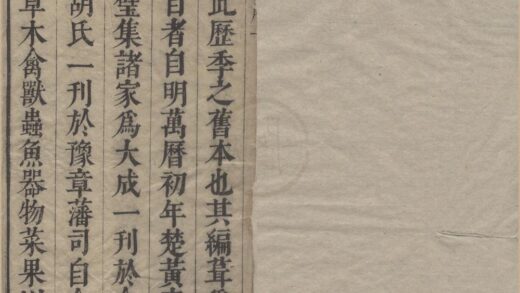 此歷季之舊本也其編葺
目者自明萬曆初年楚黃
璧集諸家為大成一刊於
胡氏一刊於豫章藩司自
草木禽獸蟲魚器物菜果